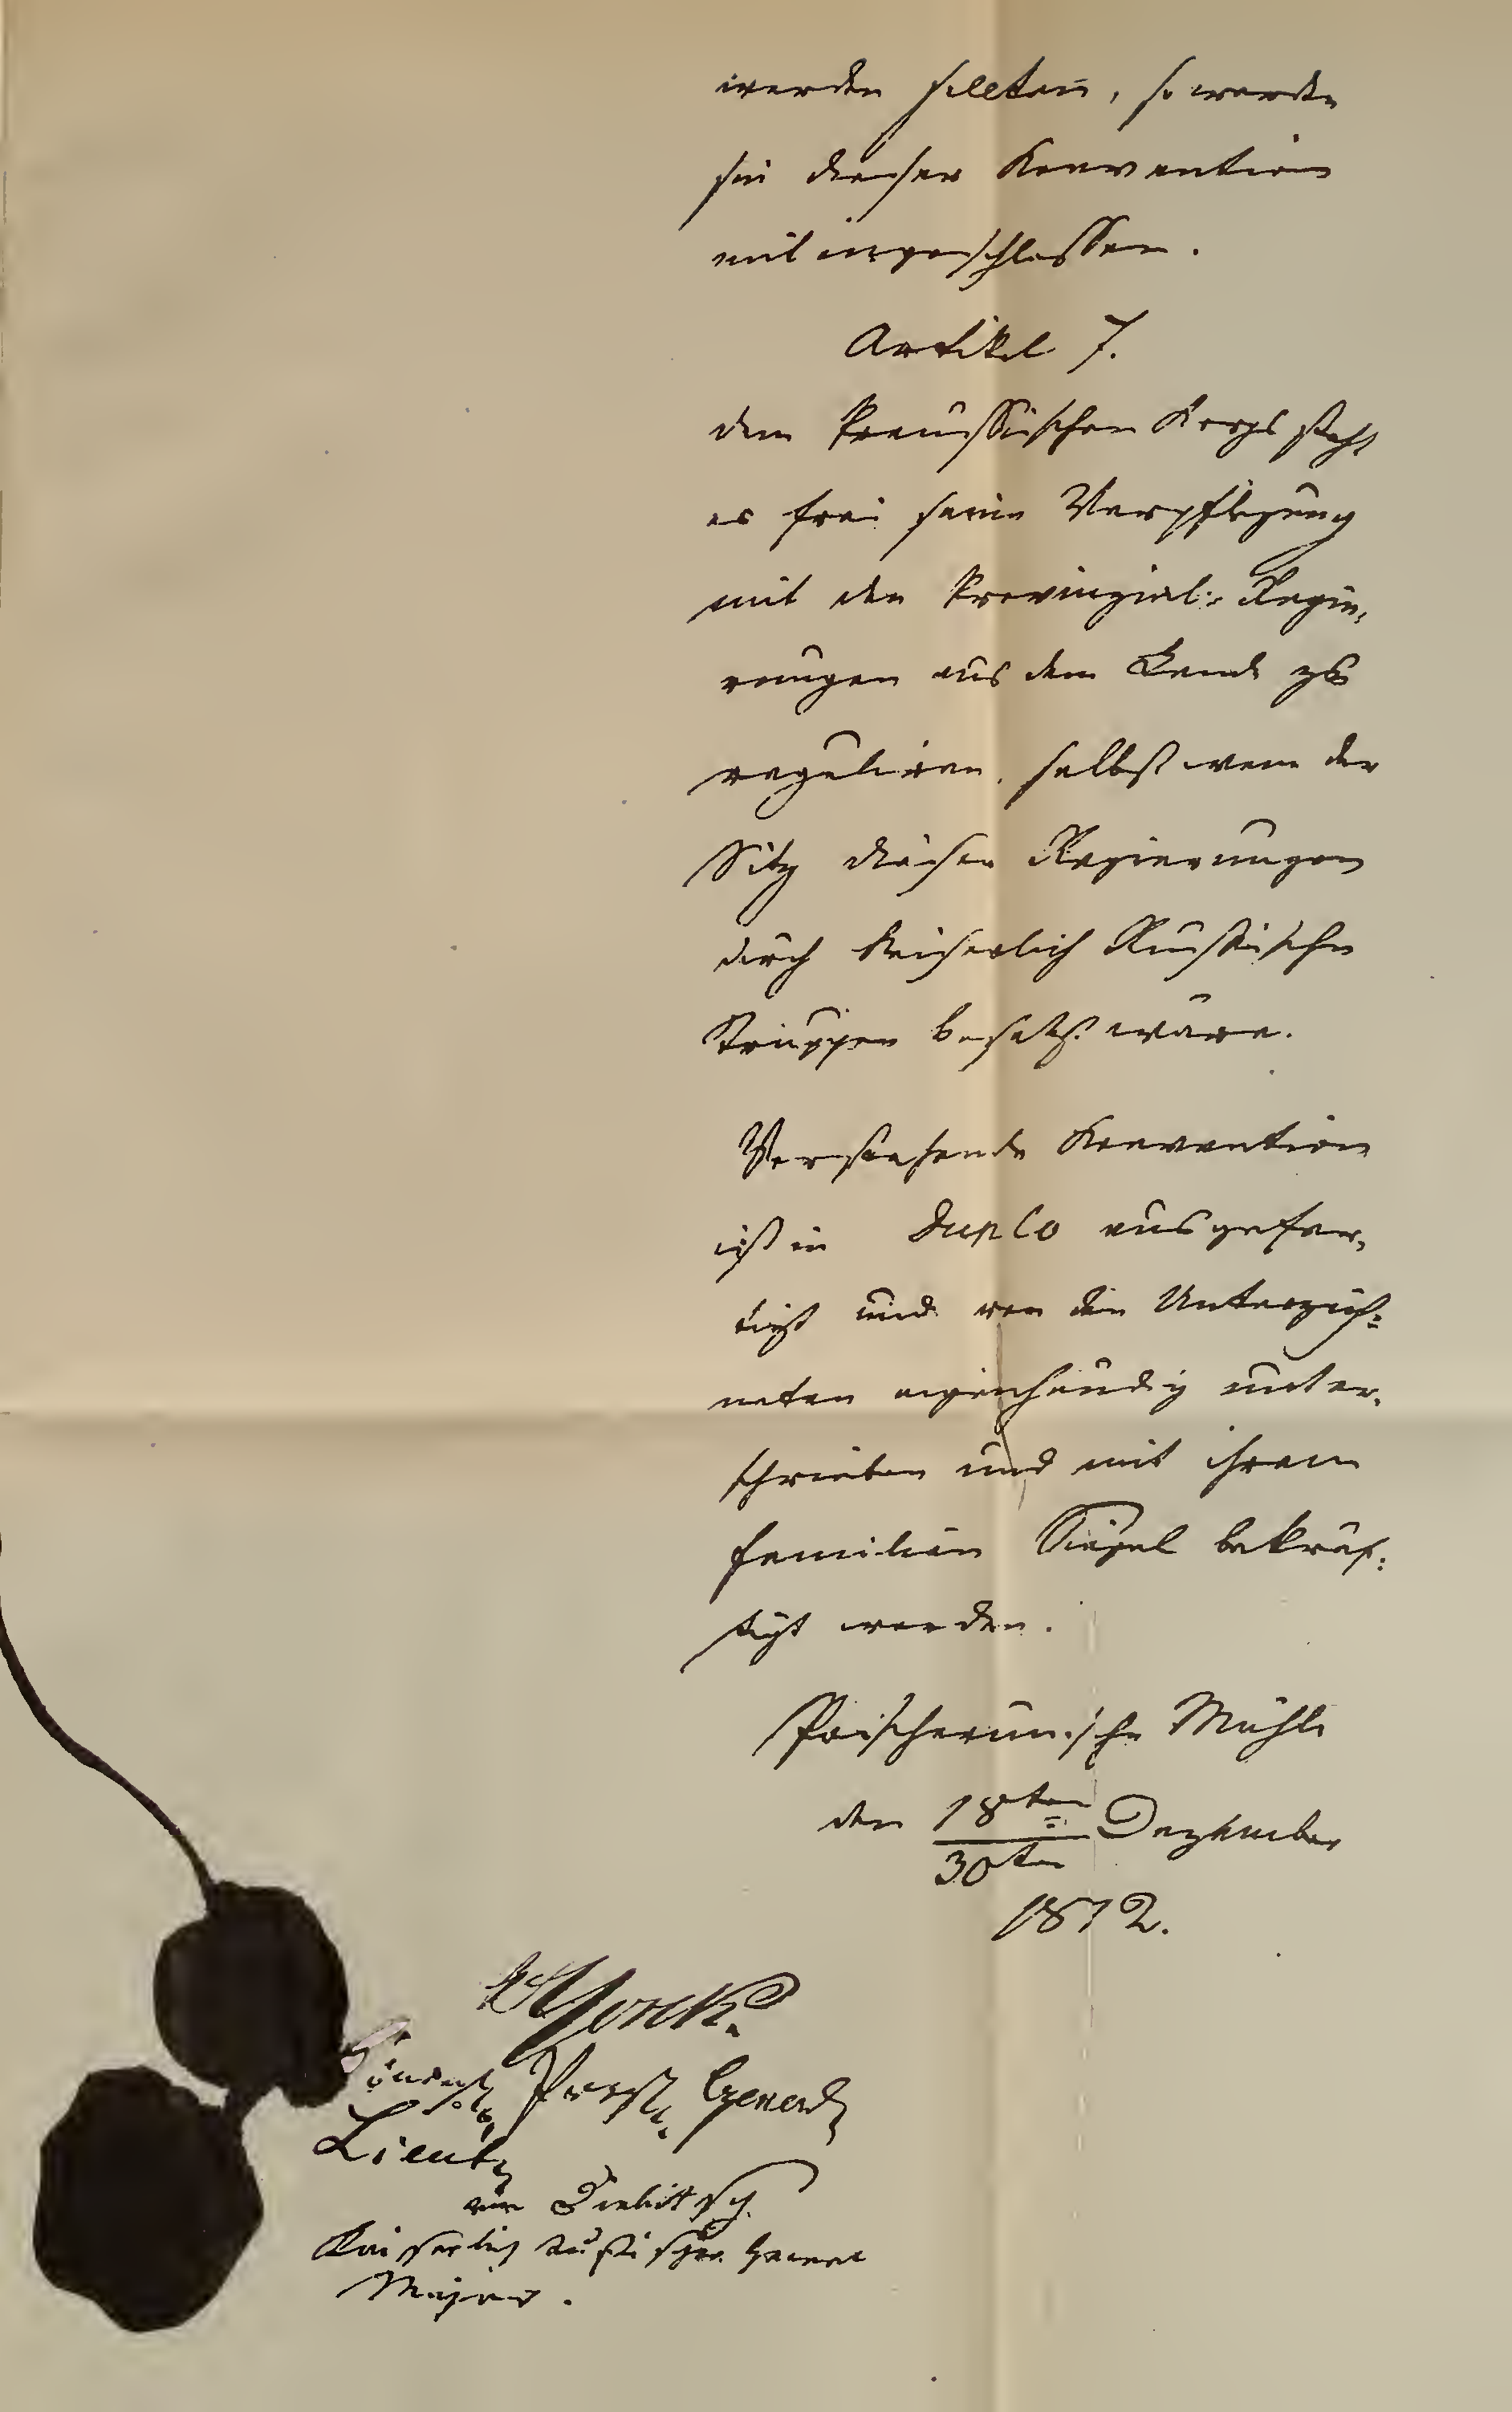 werden sollten, so werden
sie dieser Konvention
mit ingeschlossen.
Artikel 7.
dem Preussischen Korps steht
es frei seine Verpflegung
mit den Provinzial-Regie,
rungen aus dem Lande zu
reguliren, selbst wenn der
Sitz dieser Regierungen
durch Kaiserlich Russische
Truppen besetzt wäre.
Vorstehende Konvention
ist in Duplo ausgefer,
tigt und von den Unterzeich=
neten eigenhändig unter,
schrieben und mit ihrem
familien Siegel bekräf:
tigt worden.
Poischerunische Mühle
den 18ten Dezember
30ten
1812.
v Yorck.
Königl. Preuß. General
Lieut.
von Diebitsch.
Kaiserlich Russischer General
Major.